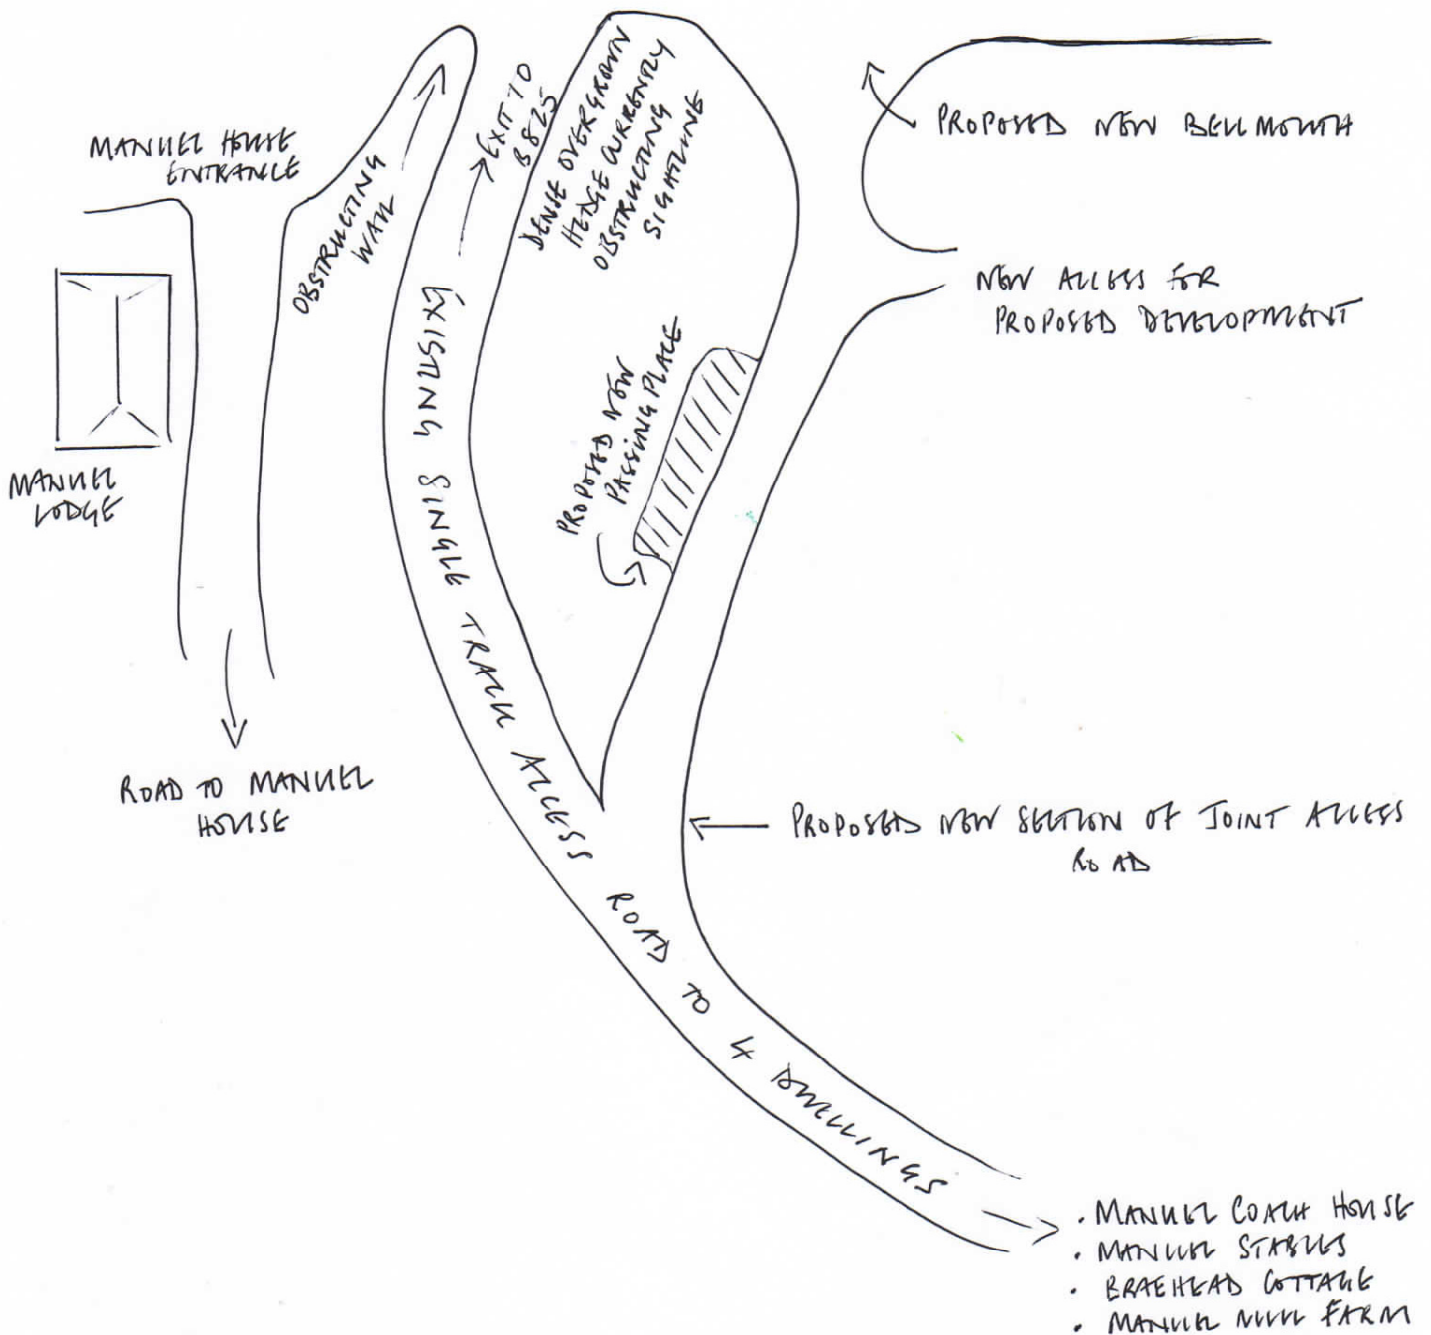 MANUEL HOUSE
ENTRANCE
OBSTRUCTING
WALL
EXIT TO
B825
DENSE OVERGROWN
HEDGE CURRENTLY
OBSTRUCTING
SIGHTLINE
PROPOSED NEW BELLMOUTH
NEW ACCESS FOR
PROPOSED DEVELOPMENT
PROPOSED NEW
PASSING PLACE
MANUEL
LODGE
EXISTING SINGLE TRACK ACCESS ROAD TO 4 DWELLINGS
ROAD TO MANUEL
HOUSE
PROPOSED NEW SECTION OF JOINT ACCESS
ROAD
• MANUEL COACH HOUSE
• MANUEL STABLES
• BRAEHEAD COTTAGE
• MANUEL MILL FARM